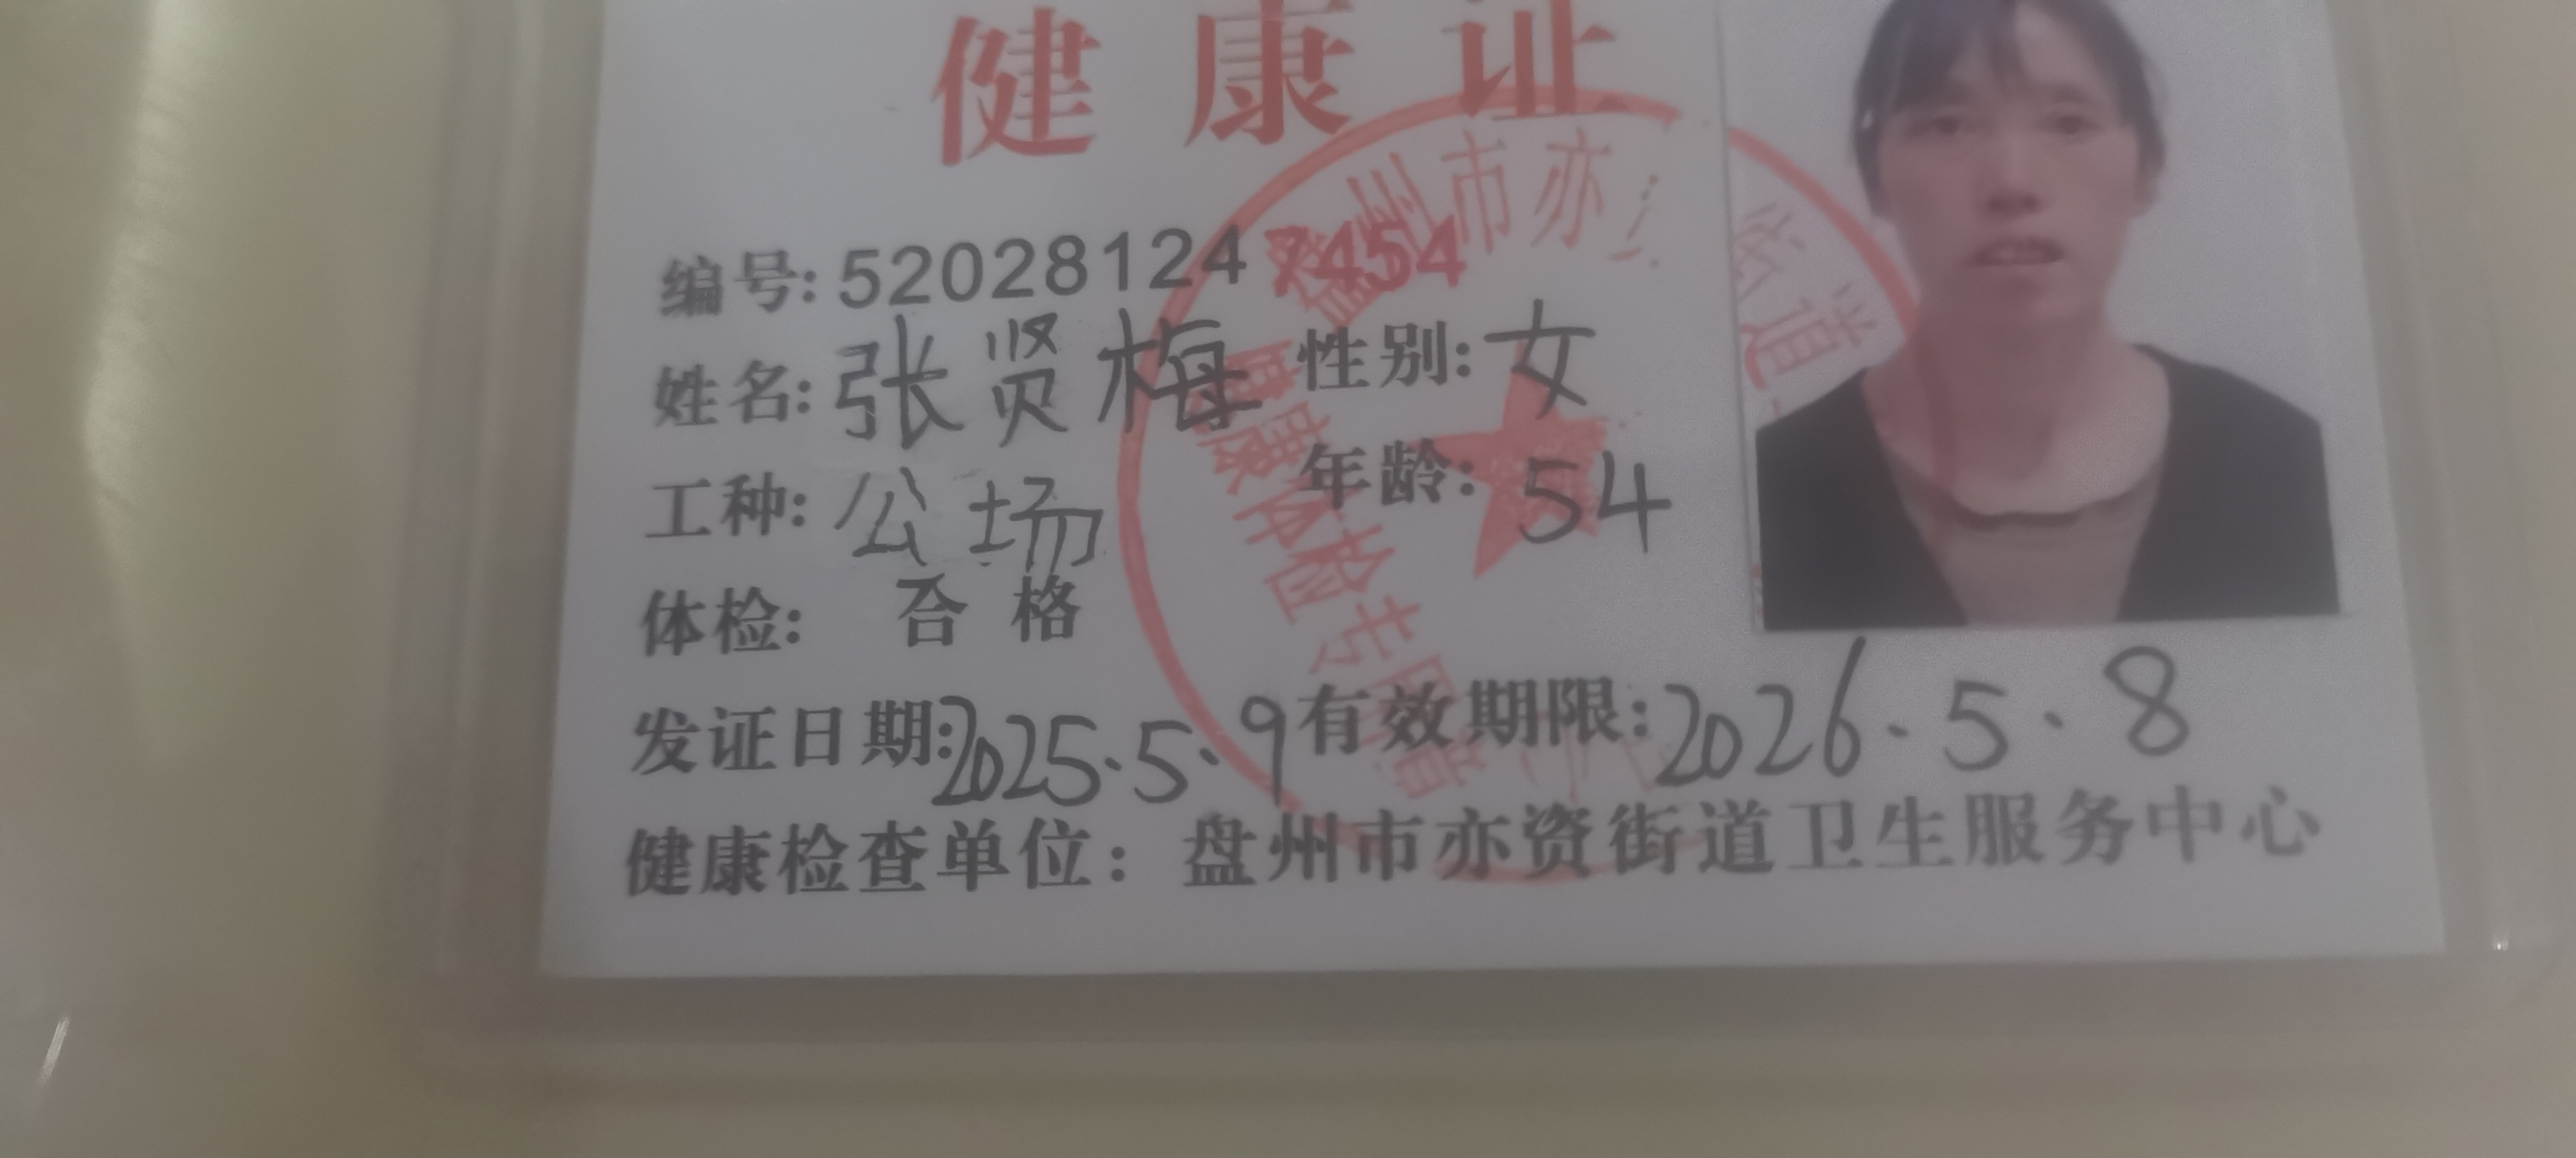 健康证
编号: 520281247454
姓名: 张贤梅 性别: 女
工种: 公场 年龄: 54
体检: 合格
发证日期: 2025.5.9 有效期限: 2026.5.8
健康检查单位：盘州市亦资街道卫生服务中心
盘州市亦 街道
健康体检专用章